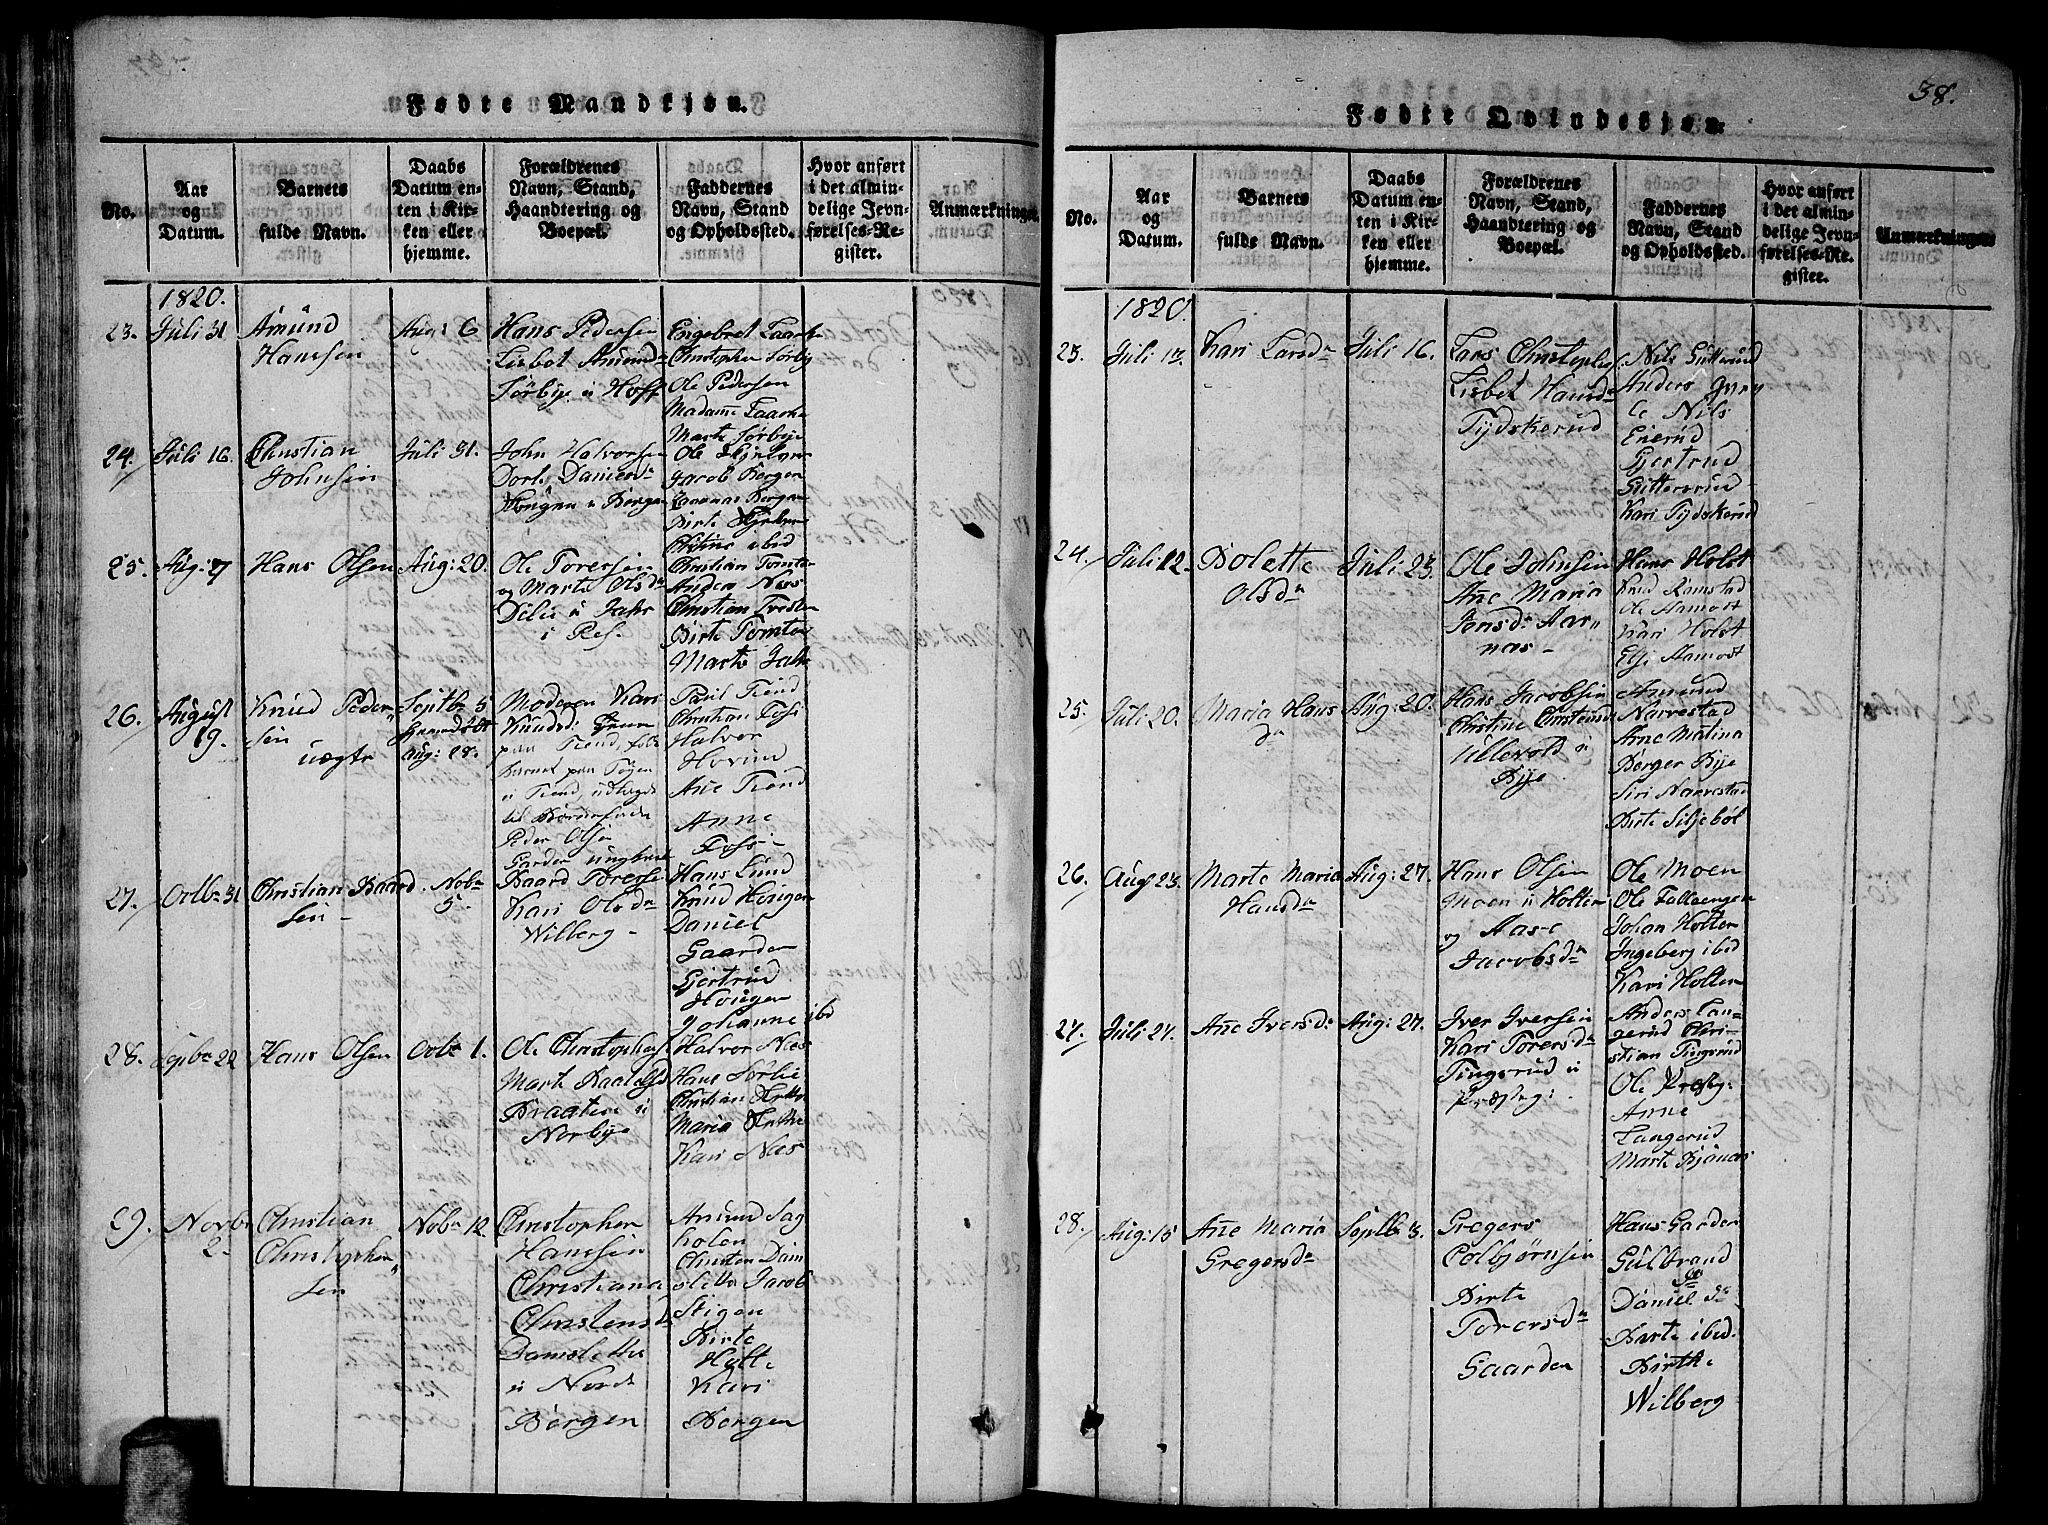 38.
Fødte Mandkjøn.
No.
Aar
og
Datum.
Barnets
fulde Navn.
Daabs
Datum en-
ten i Kir-
ken eller
hjemme.
Forældrenes
Navn, Stand,
Haandtering og
Boepæl.
Faddernes
Navn, Stand
og Opholdssted.
Hvor anført
i det almin-
delige Jevn-
førelses-Re-
gister.
Anmærkninger.
1820.
23.
Juli 31
Amund
Hanssen
Aug: 6
Hans Pedersen
Lisbet Amunds
Sørbye u Hoff
Engebret Faarke
Christopher Sørby
Ole Pedersen
Madame Faarke
Marte Sørbye
24.
Juli 16.
Christian
Johnsen
Juli 31.
John Halvorsen
Dorte Daniesdr
Hougen u Borgen
Jacob Borgen
Borgen
Birte
ibid
25.
Aug: 7
Hans Olsen
Aug: 20.
Ole Toresen
og Marte Olsdr
Christian Tomter
Andrea Næs
Christian
Birte Tomter
Marte
26.
August
19.
Knud Peder
sen
uægte
Septbr 5
Aug: 28.
Moderen Kari
Knudsd:
paa Tiend,
Barnet paa
u Tiend, udlagde
til Barnefader
Peder Olsen
Garder ungkarl
Paul Tiend
Christian Fossi
Halvor
Hovind
Ane Tiend
Anne
Fossi
27.
Octbr 31
Christian Baard
sen
Nobr
5.
Baard Toresen
Kari Olsdr
Wilberg
Hans Lund
Knud Hougen
Daniel
Gaarder
Gjertrud
Hougen
Johanne ibd
28.
Septbr 22
Hans Olsen
Octbr 1.
Ole Christophers
Marte
Braaten u
Norbye
Halvor Næs
Hans Sørlie
Christian
Maria
Kari Næs
29.
Novbr
2.
Christian
Christopher
sen
Nobr 12.
Christopher
Hanssen
Christiana
Christensdr
Damsletta
u Nord
Borgen
Amund Sag
holen
Christen Dam
sletta Jacob
Stigen
Birte
Hytte
Kari
Borgen
Fødte Qvindekjøn.
No.
Aar
og
Datum.
Barnets
fulde Navn.
Daabs
Datum en-
ten i Kir-
ken eller
hjemme.
Forældrenes
Navn, Stand,
Haandtering og
Boepæl.
Faddernes
Navn, Stand
og Opholdssted.
Hvor anført
i det almin-
delige Jevn-
førelses-Re-
gister.
Anmærkninger
1820.
23.
Juli 13.
Kari Larsdr
Juli 16.
Lars Christophs
Lisbet Hansdr
Tydskerud
Nils Gutterud
Anders
Nils
Enerud
Gjertrud
Gutterud
Kari Tydskerud
24.
Juli 12.
Bolette
Olsdr
Juli 23.
Ole Johnsen
Ane Maria
Jensdr Aar-
nas
Hans Holst
Knud Ramstad
Ole Aamost
Kari Holst
Elsi Aamost
25.
Juli 20.
Maria Hans
dr
Aug: 20.
Hans Jacobsen
Christine Amunds
Ullevold u
Bye
Amund
Narvestad
Arne Malina
Borger Bye
Siri Narvestad
Birte Siljebøl
26.
Aug 23.
Marte Maria
Hansdr
Aug: 27.
Hans Olsen
Moen u Holter
og Aase
Jacobsdr
Ole Moen
Ole Fallaengen
Johan Holter
Ingeberg ibid
Kari Holter
27.
Juli 27.
Ane Iversdr
Aug: 27.
Iver Iversen
Kari Toresdr
Tingsrud u
Præsteg:
Anders Lan-
gerud Chri-
stian Tingsrud
Ole Præsteg:
Anne
Langerud
Marte Bjønnes
28.
Aug: 15
Ane Maria
Gregersdr
Septbr 3.
Gregers
Colbjørnsen
Birte
Toresdr
Gaarder
Hans Garder
Gulbrand
Daniel
Birte ibid.
Birthe
Wilberg